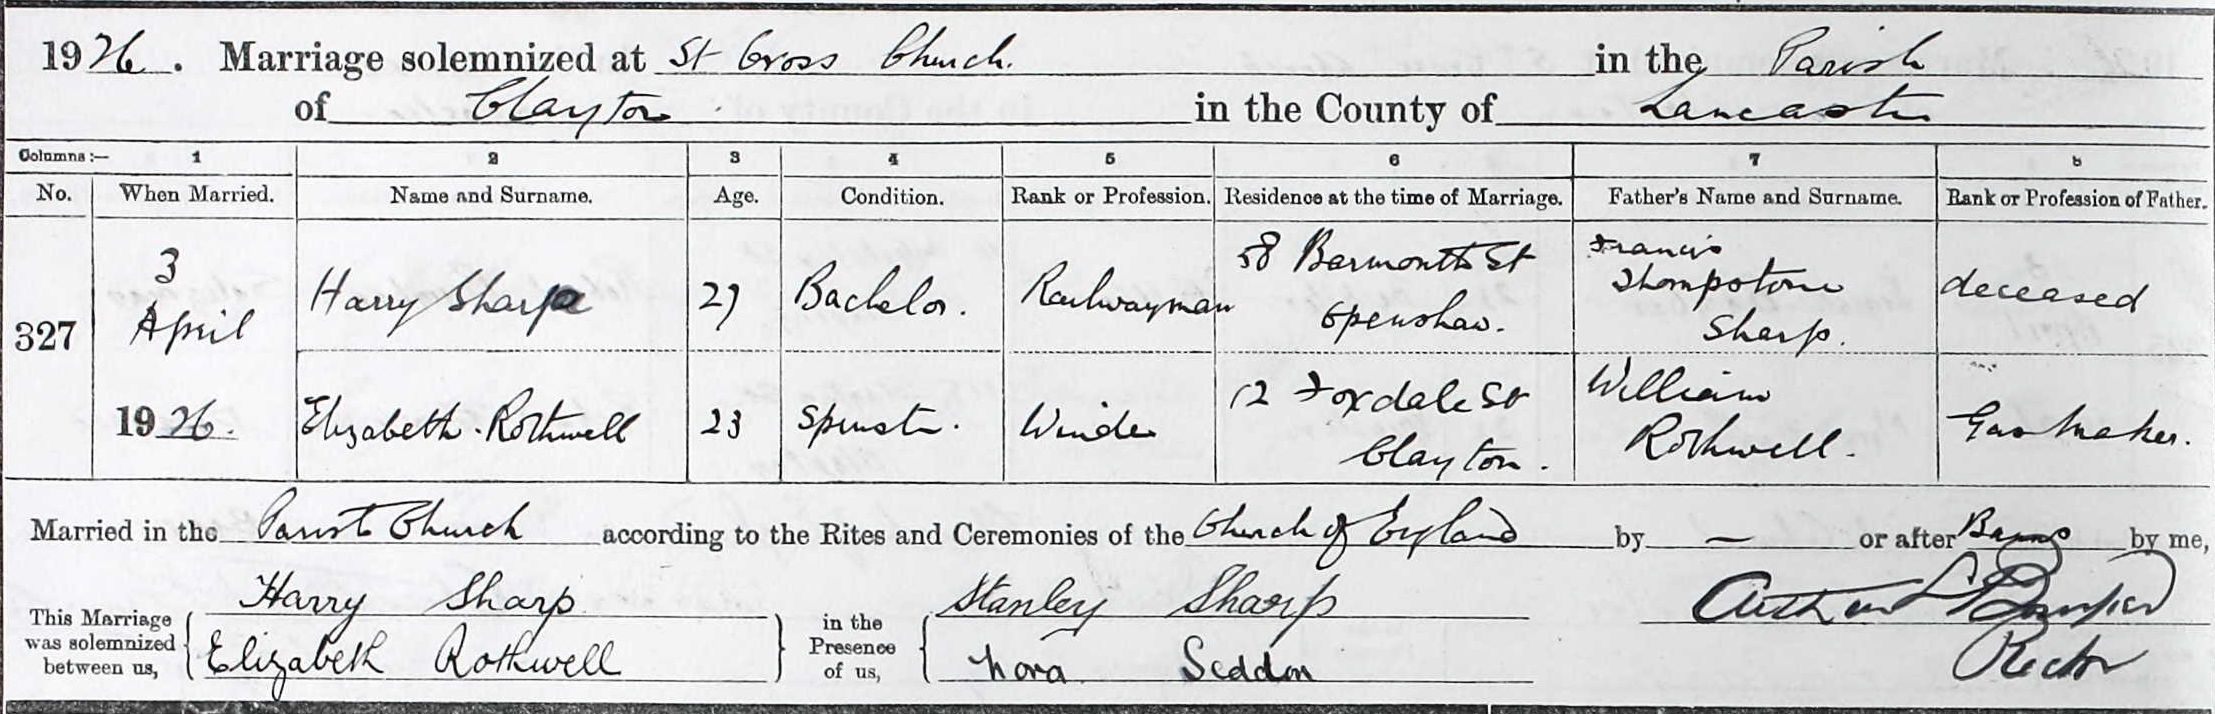 1926. Marriage solemnized at St Cross Church. in the Parish
of Clayton in the County of Lancaster
Columns:— 1 2 3 4 5 6 7 8
No. When Married. Name and Surname. Age. Condition. Rank or Profession. Residence at the time of Marriage. Father's Name and Surname. Rank or Profession of Father.
327
3
April
1926.
Harry Sharp 29 Bachelor. Railwayman
58 Barmouth St
Openshaw.
Francis
Thompstone
Sharp.
deceased
Elizabeth Rothwell 23 Spinster. Winder
12 Foxdale St
Clayton.
William
Rothwell.
Gas Maker.
Married in the Parish Church according to the Rites and Ceremonies of the Church of England by — or after Banns by me,
This Marriage was solemnized between us,
Harry Sharp
Elizabeth Rothwell
in the Presence of us,
Stanley Sharp
Nora Seddon
Arthur
Rector